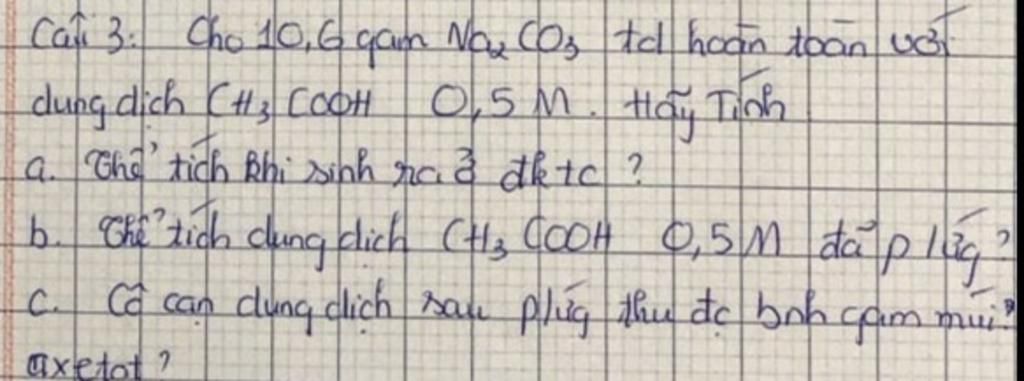 Câu 3: Cho 10,6 gam Na₂CO₃ td hoàn toàn với
dung dịch CH₃COOH 0,5M. Hãy Tính
a. Thể tích khí sinh ra ở đktc ?
b. Thể tích dung dịch CH₃COOH 0,5M đã p/ứg ?
c. Cô cạn dung dịch sau p/ứg thu đc bnh gam muối
axetat ?